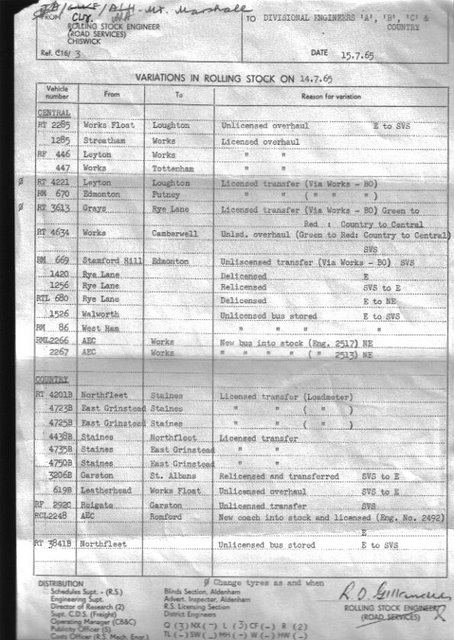 Mr. Marshall
FROM
ROLLING STOCK ENGINEER
(ROAD SERVICES)
CHISWICK
Ref. C16/ 3
TO DIVISIONAL ENGINEERS 'A', 'B', 'C' &
COUNTRY
DATE 15.7.65
VARIATIONS IN ROLLING STOCK ON 14.7.65
Vehicle number From To Reason for variation
CENTRAL
RT 2285 Works Float Loughton Unlicensed overhaul E to SVS
1285 Streatham Works Licensed overhaul
RF 446 Leyton Works " "
447 Works Tottenham " "
Ø RT 4221 Leyton Loughton Licensed transfer (Via Works - BO)
RM 670 Edmonton Putney " " ( " " " )
Ø RT 3613 Grays Rye Lane Licensed transfer (Via Works - BO) Green to
Red : Country to Central
RT 4634 Works Camberwell Unlsd. overhaul (Green to Red: Country to Central)
SVS
RM 669 Stamford Hill Edmonton Unliscensed transfer (Via Works - BO) SVS
1420 Rye Lane Delicensed E
1256 Rye Lane Relicensed SVS to E
RTL 680 Rye Lane Delicensed E to NE
1526 Walworth Unlicensed bus stored E to SVS
RM 86 West Ham " " " "
RML2266 AEC Works New bus into stock (Eng. 2517) NE
2267 AEC Works " " " " ( " 2513) NE
COUNTRY
RT 4201B Northfleet Staines Licensed transfer (Loadmeter)
4723B East Grinstead Staines " " ( " )
4725B East Grinstead Staines " " ( " )
4438B Staines Northfleet Licensed transfer
4735B Staines East Grinstead " "
4750B Staines East Grinstead " "
3206B Garston St. Albans Relicensed and transferred SVS to E
619B Leatherhead Works Float Unlicensed overhaul SVS to E
RF 292C Reigate Garston Unlicensed transfer SVS
RCL2248 AEC Romford New coach into stock and licensed (Eng. No. 2492)
E
RT 3841B Northfleet Unlicensed bus stored E to SVS
Ø Change tyres as and when
DISTRIBUTION
Schedules Supt. - (R.S.) Blinds Section, Aldenham
Engineering Supt. Advert. Inspector, Aldenham
Director of Research (2) R.S. Licensing Section
Supt. C.D.S. (Freight) District Engineers
Operating Manager (CB&C) Q (3) NX (-) L (3) CF (-) R (2)
Publicity Officer (5) TL (-) SW (-) MH (-) W (-) HW (-)
Costs Officer (R.S. Mech. Engr.)
ROLLING STOCK ENGINEER
(ROAD SERVICES)